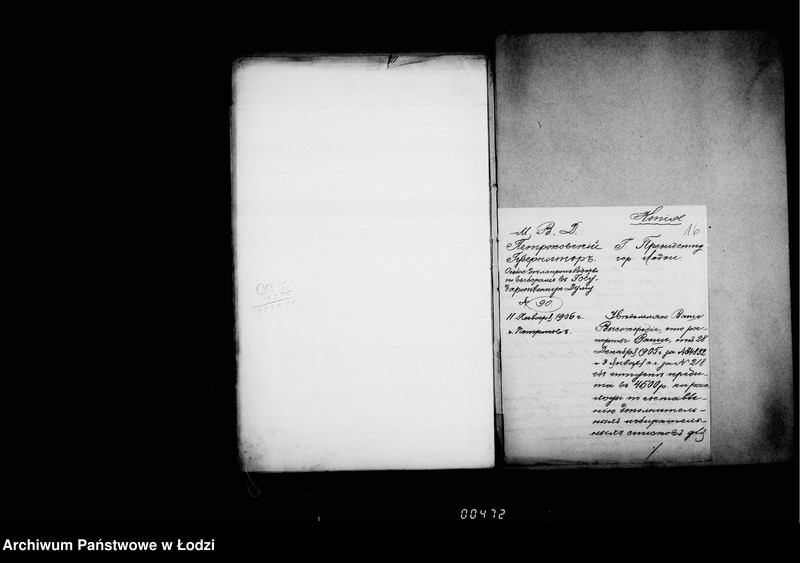 Копія
16
М. В. Д.
Петроковскій
Губернаторъ.
по выборамъ въ Госу-
дарственную Думу
№ 90
11 Января 1906 г.
г. Петроковъ.
Г. Президенту
гор. Лодзи
Увѣдомляю Ваше
Высокородіе, что ра-
порты Ваши, отъ 28
Декабря 1905 г. за №
и 9 Января с.г. за № 218
объ отпускѣ креди-
та въ 4500 р. на рас
ходы по составле-
нію дополнитель-
ныхъ избиратель-
ныхъ списковъ для
00472
Archiwum Państwowe w Łodzi